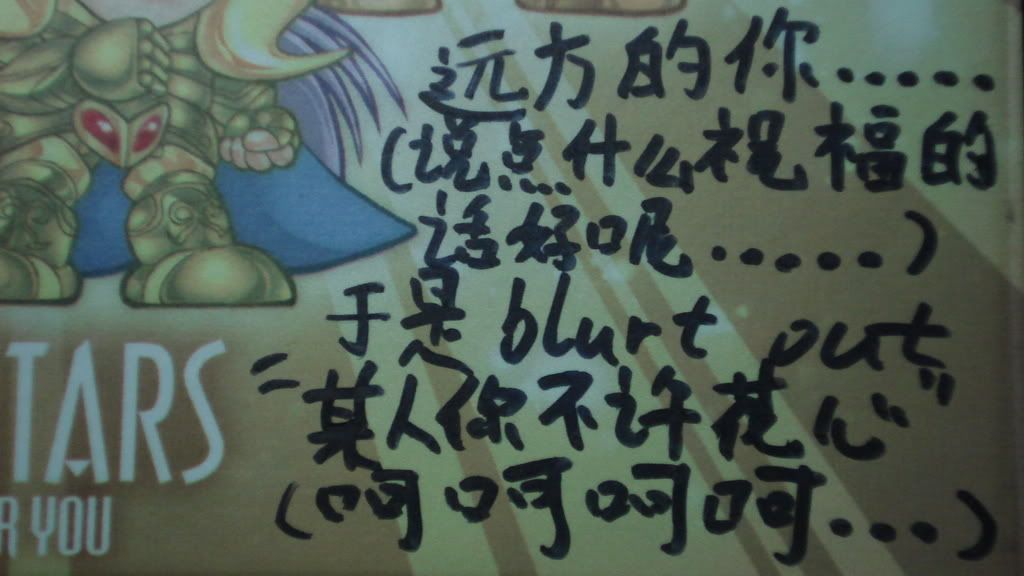 远方的你......
(说点什么祝福的
话好呢......)
于是 blurt out
"某人你不许花心"
(呵呵呵呵...)
TARS
R YOU